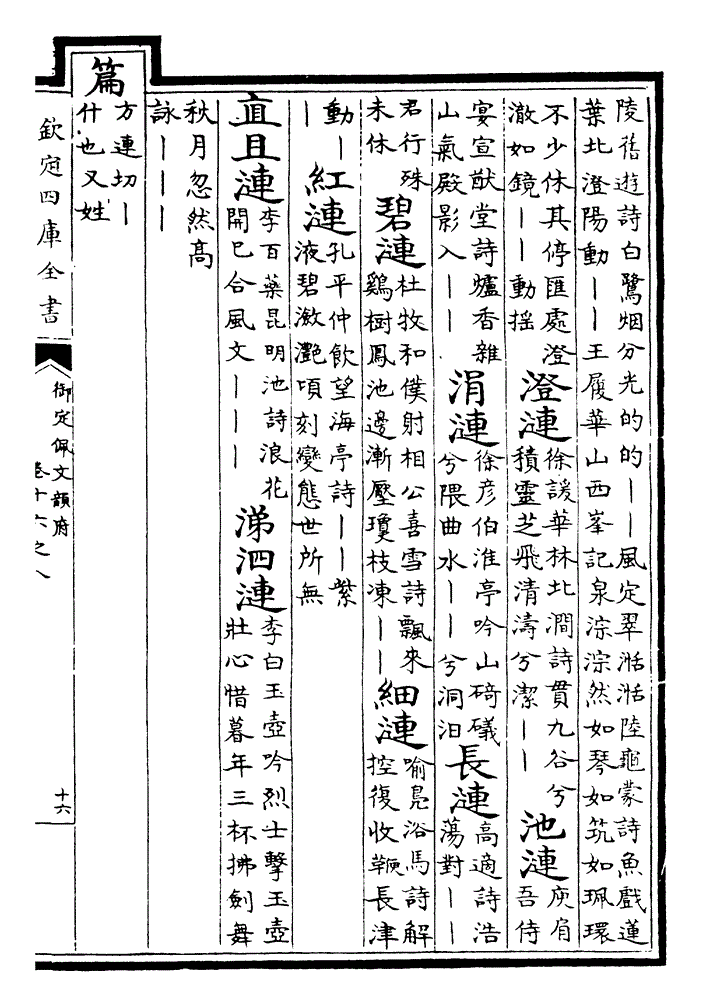 陵舊遊詩白鷺烟分光的的——風定翠湉湉陸龜蒙詩魚戯蓮
葉北澄陽動——王履華山西峯記泉淙淙然如琴如筑如珮環
不少休其停匯處澄
澈如鏡——動揺
澄漣
徐諼華林北澗詩貫九谷兮
積靈芝飛清濤兮潔——
池漣
庾肩
吾侍
宴宣猷堂詩爐香雜
山氣殿影入——
涓漣
徐彦伯淮亭吟山碕礒
兮隈曲水——兮洞汨
長漣
高適詩浩
蕩對——
君行殊
未休
碧漣
杜牧和僕射相公喜雪詩飄來
鷄樹鳳池邊漸壓瓊枝凍——
細漣
喻鳧浴馬詩解
控復收鞭長津
動—
—
紅漣
孔平仲飲望海亭詩——紫
液碧潋灔頃刻變態世所無
直且漣
李百藥昆明池詩浪花
開已合風文———
涕泗漣
李白玉壺吟烈士擊玉壺
壯心惜暮年三杯拂劍舞
秋月忽然高
詠———
篇
方連切—
什也又姓
欽定四庫全書
御定佩文韻府
卷十六之八
十六